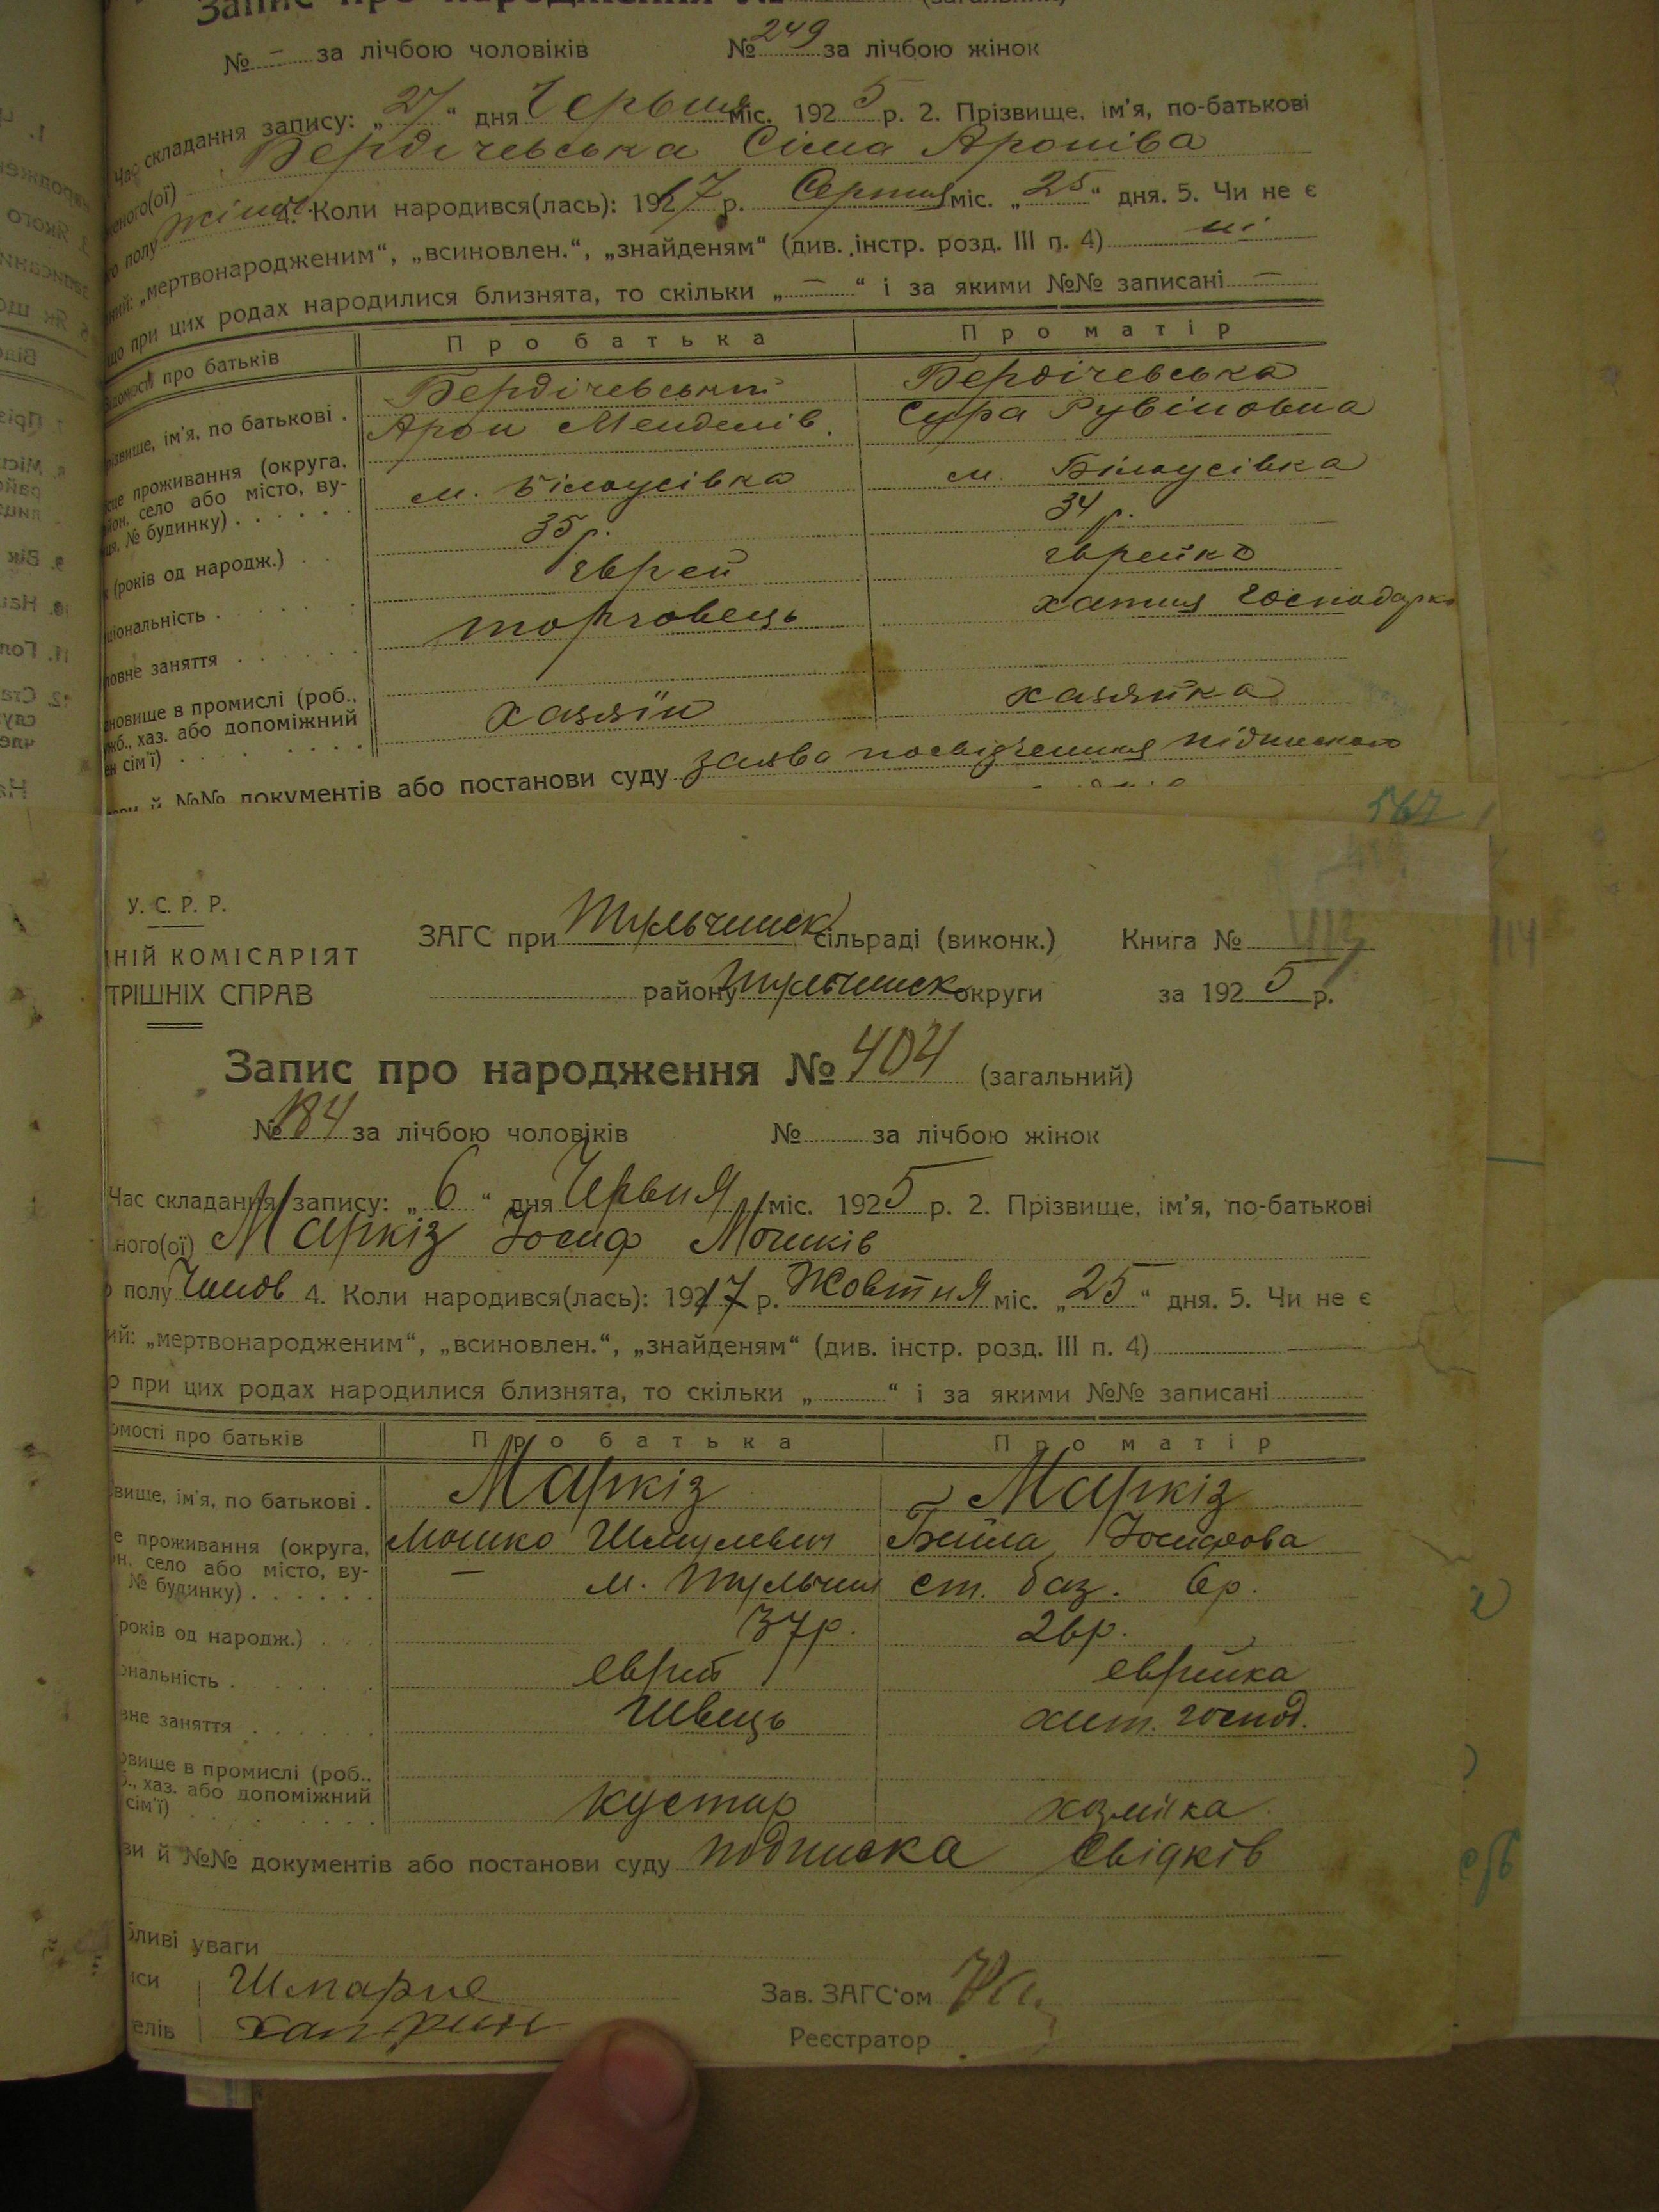 Запис про народження № (загальний)
№ — за лічбою чоловіків № 249 за лічбою жінок
Час складання запису: „27“ дня Червня міс. 1925 р. 2. Прізвище, ім’я, по-батькові
еного(ої) Бердічевська Сіма Аронівa
го полу жіноч. 4. Коли народився(лась): 1917 р. Серпня міс. „25“ дня. 5. Чи не є
ний: „мертвонародженим“, „всиновлен.“, „знайденям“ (див. інстр. розд. III п. 4) ні
що при цих родах народилися близнята, то скільки „—“ і за якими №№ записані —
ідомості про батьків Про батька Про матір
різвище, ім’я, по батькові . Бердічевський Бердічевська
Арон Менделів. Сура Рувіновна
сце проживання (округа,
йон, село або місто, ву- м. Білоусівка м. Білоусівка
ця, № будинку) . . . . . .
к (років од народж.) . . 35 р. 34 р.
ціональність . . . . . . єврей єврейка
ловне заняття . . . . . . торговець хатня господарка
ановище в промислі (роб.,
ужб., хаз. або допоміжний хазяїн хазяйка
ен сім’ї) . . . . . . .
й №№ документів або постанови суду заява посвідчення
567
У. С. Р. Р. ЗАГС при Тульчинск сільраді (виконк.) Книга № VII
НІЙ КОМІСАРІЯТ
ТРІШНІХ СПРАВ району Тульчинск округи за 1925 р.
114
Запис про народження № 404 (загальний)
№ 184 за лічбою чоловіків № за лічбою жінок
Час складання запису: „6“ дня Червня міс. 1925 р. 2. Прізвище, ім’я, по-батькові
ного(ої) Маркіз Йосиф Мошків
о полу Чолов 4. Коли народився(лась): 1917 р. Жовтня міс. „25“ дня. 5. Чи не є
ий: „мертвонародженим“, „всиновлен.“, „знайденям“ (див. інстр. розд. III п. 4)
о при цих родах народилися близнята, то скільки „ “ і за якими №№ записані
омості про батьків Про батька Про матір
звище, ім’я, по батькові . Маркіз Маркіз
е проживання (округа, Мошко Шмулевич Бейла Йосифова
он, село або місто, ву-
№ будинку) . . . . . . — м. Тульчин ст. баз. 6р.
років од народж.) . . 37р. 26р.
ональність . . . . . . еврей еврейка
вне заняття . . . . . . Швець хат. господ.
овище в промислі (роб.,
б., хаз. або допоміжний
сім’ї) . . . . . . . кустар хозяйка
ви й №№ документів або постанови суду подписка свідків
бливі уваги
иси Шпарие Зав. ЗАГС’ом
елів Реєстратор